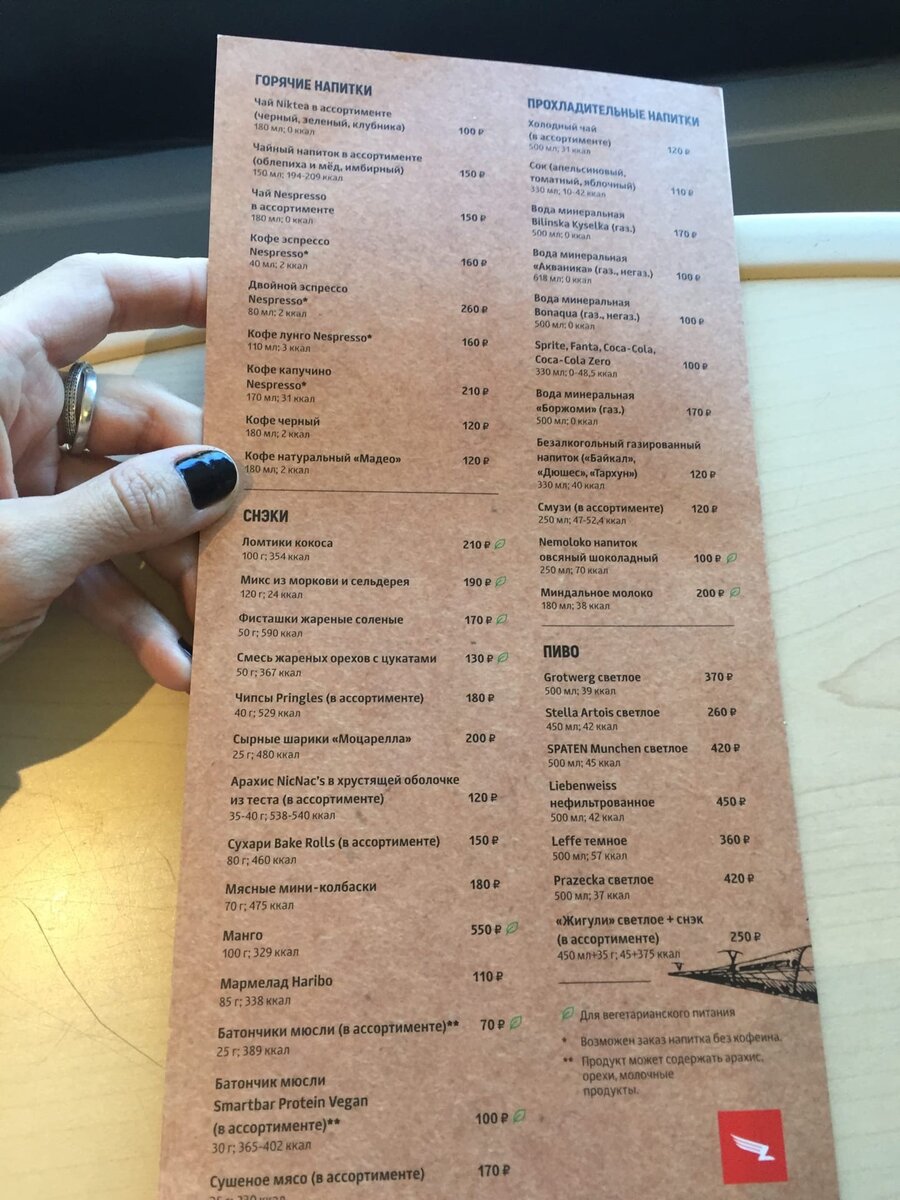 ГОРЯЧИЕ НАПИТКИ
Чай Niktea в ассортименте
(черный, зеленый, клубника) 100 ₽
180 мл; 0 ккал
Чайный напиток в ассортименте
(облепиха и мёд, имбирный) 150 ₽
150 мл; 194-209 ккал
Чай Nespresso
в ассортименте 150 ₽
180 мл; 0 ккал
Кофе эспрессо
Nespresso* 160 ₽
40 мл; 2 ккал
Двойной эспрессо
Nespresso* 260 ₽
80 мл; 2 ккал
Кофе лунго Nespresso* 160 ₽
110 мл; 3 ккал
Кофе капучино
Nespresso* 210 ₽
170 мл; 31 ккал
Кофе черный 120 ₽
180 мл; 2 ккал
Кофе натуральный «Мадео» 120 ₽
180 мл; 2 ккал
СНЭКИ
Ломтики кокоса 210 ₽
100 г; 354 ккал
Микс из моркови и сельдерея 190 ₽
120 г; 24 ккал
Фисташки жареные соленые 170 ₽
50 г; 590 ккал
Смесь жареных орехов с цукатами 130 ₽
50 г; 367 ккал
Чипсы Pringles (в ассортименте) 180 ₽
40 г; 529 ккал
Сырные шарики «Моцарелла» 200 ₽
25 г; 480 ккал
Арахис NicNac's в хрустящей оболочке
из теста (в ассортименте) 120 ₽
35-40 г; 538-540 ккал
Сухари Bake Rolls (в ассортименте) 150 ₽
80 г; 460 ккал
Мясные мини-колбаски 180 ₽
70 г; 475 ккал
Манго 550 ₽
100 г; 329 ккал
Мармелад Haribo 110 ₽
85 г; 338 ккал
Батончики мюсли (в ассортименте)** 70 ₽
25 г; 389 ккал
Батончик мюсли
Smartbar Protein Vegan
(в ассортименте)** 100 ₽
30 г; 365-402 ккал
Сушеное мясо (в ассортименте) 170 ₽
ПРОХЛАДИТЕЛЬНЫЕ НАПИТКИ
Холодный чай
(в ассортименте) 120 ₽
500 мл; 31 ккал
Сок (апельсиновый,
томатный, яблочный) 110 ₽
330 мл; 10-42 ккал
Вода минеральная
Bilinska Kyselka (газ.) 170 ₽
500 мл; 0 ккал
Вода минеральная
«Акваника» (газ., негаз.) 100 ₽
618 мл; 0 ккал
Вода минеральная
Bonaqua (газ., негаз.) 100 ₽
500 мл; 0 ккал
Sprite, Fanta, Coca-Cola,
Coca-Cola Zero 100 ₽
330 мл; 0-48,5 ккал
Вода минеральная
«Боржоми» (газ.) 170 ₽
500 мл; 0 ккал
Безалкогольный газированный
напиток («Байкал»,
«Дюшес», «Тархун») 120 ₽
330 мл; 40 ккал
Смузи (в ассортименте) 120 ₽
250 мл; 47-52,4 ккал
Nemoloko напиток
овсяный шоколадный 100 ₽
250 мл; 70 ккал
Миндальное молоко 200 ₽
180 мл; 38 ккал
ПИВО
Grotwerg светлое 370 ₽
500 мл; 39 ккал
Stella Artois светлое 260 ₽
450 мл; 42 ккал
SPATEN Munchen светлое 420 ₽
500 мл; 45 ккал
Liebenweiss
нефильтрованное 450 ₽
500 мл; 42 ккал
Leffe темное 360 ₽
500 мл; 57 ккал
Prazecka светлое 420 ₽
500 мл; 37 ккал
«Жигули» светлое + снэк
(в ассортименте) 250 ₽
450 мл+35 г; 45+375 ккал
Для вегетарианского питания
* Возможен заказ напитка без кофеина.
** Продукт может содержать арахис,
орехи, молочные
продукты.